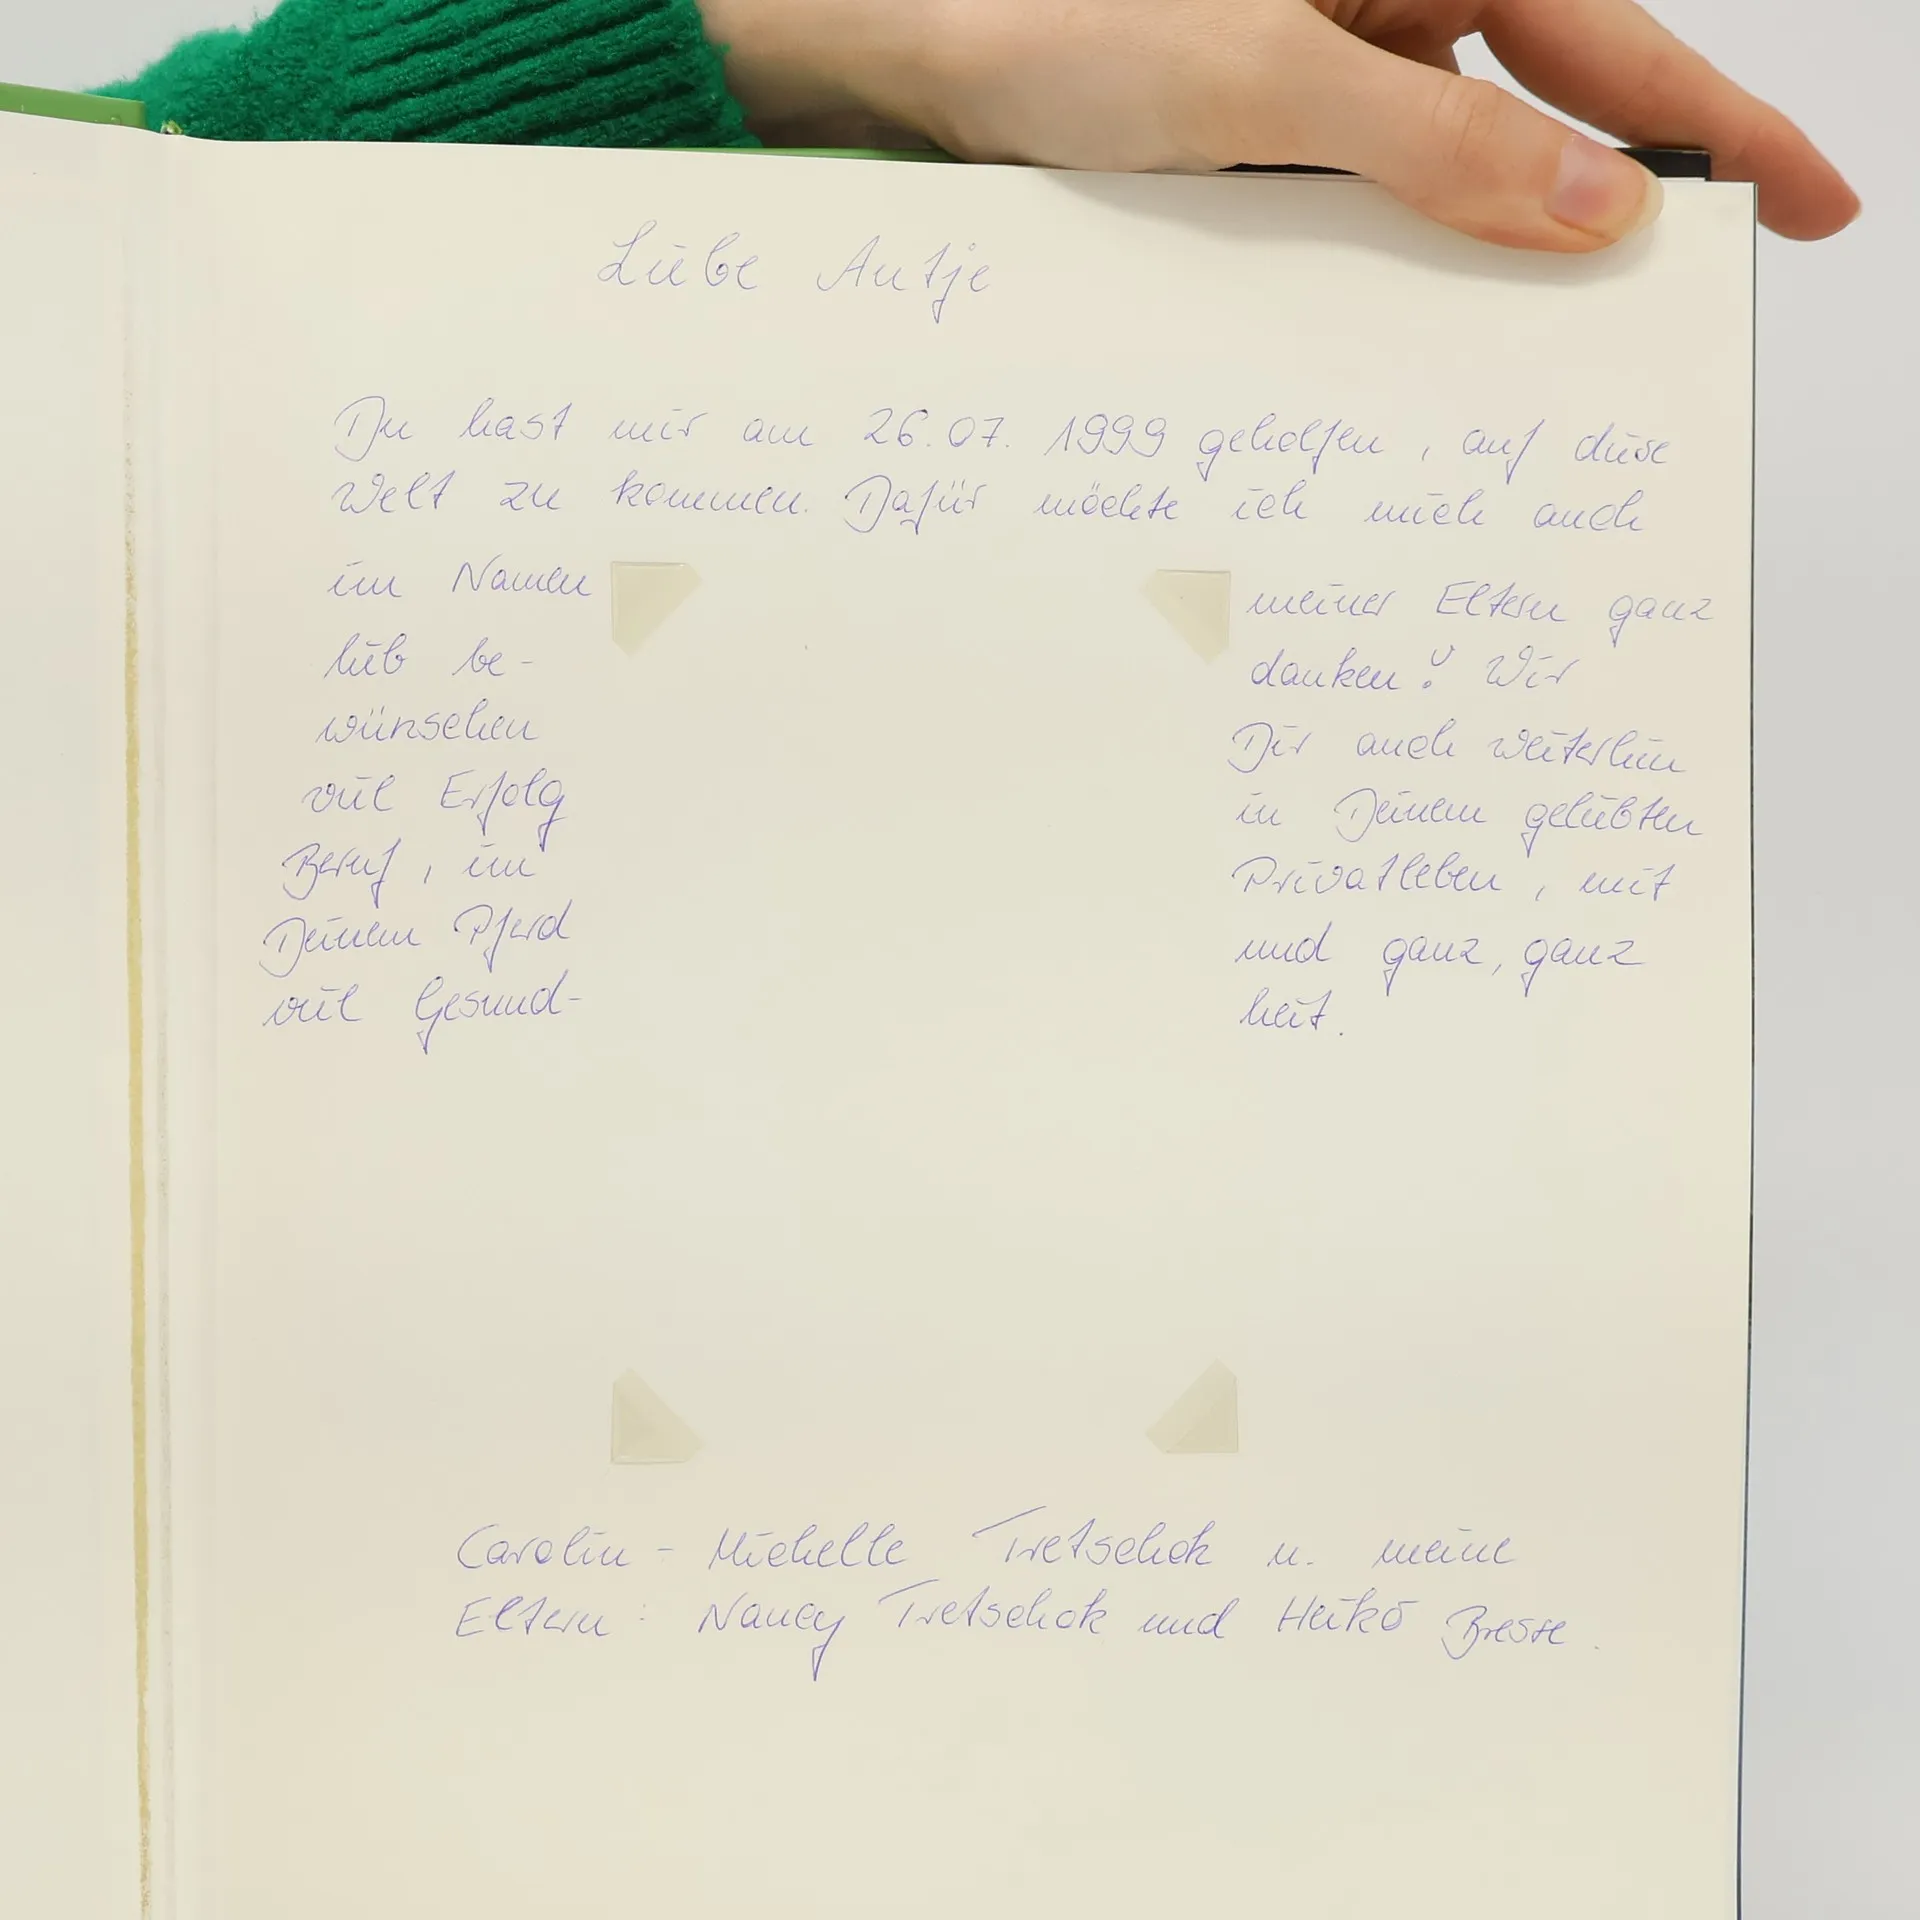 Liebe Antje
Du hast mir am 26.07.1999 geholfen, auf diese
Welt zu kommen. Dafür möchte ich mich auch
im Namen meiner Eltern ganz
lieb be- danken! Wir
wünschen Dir auch weiterhin
viel Erfolg in Deinem geliebten
Beruf, im Privatleben, mit
Deinem Pferd und ganz, ganz
viel Gesund- heit.
Carolin - Michelle Tretschok u. meine
Eltern: Nancy Tretschok und Heiko Bresse.